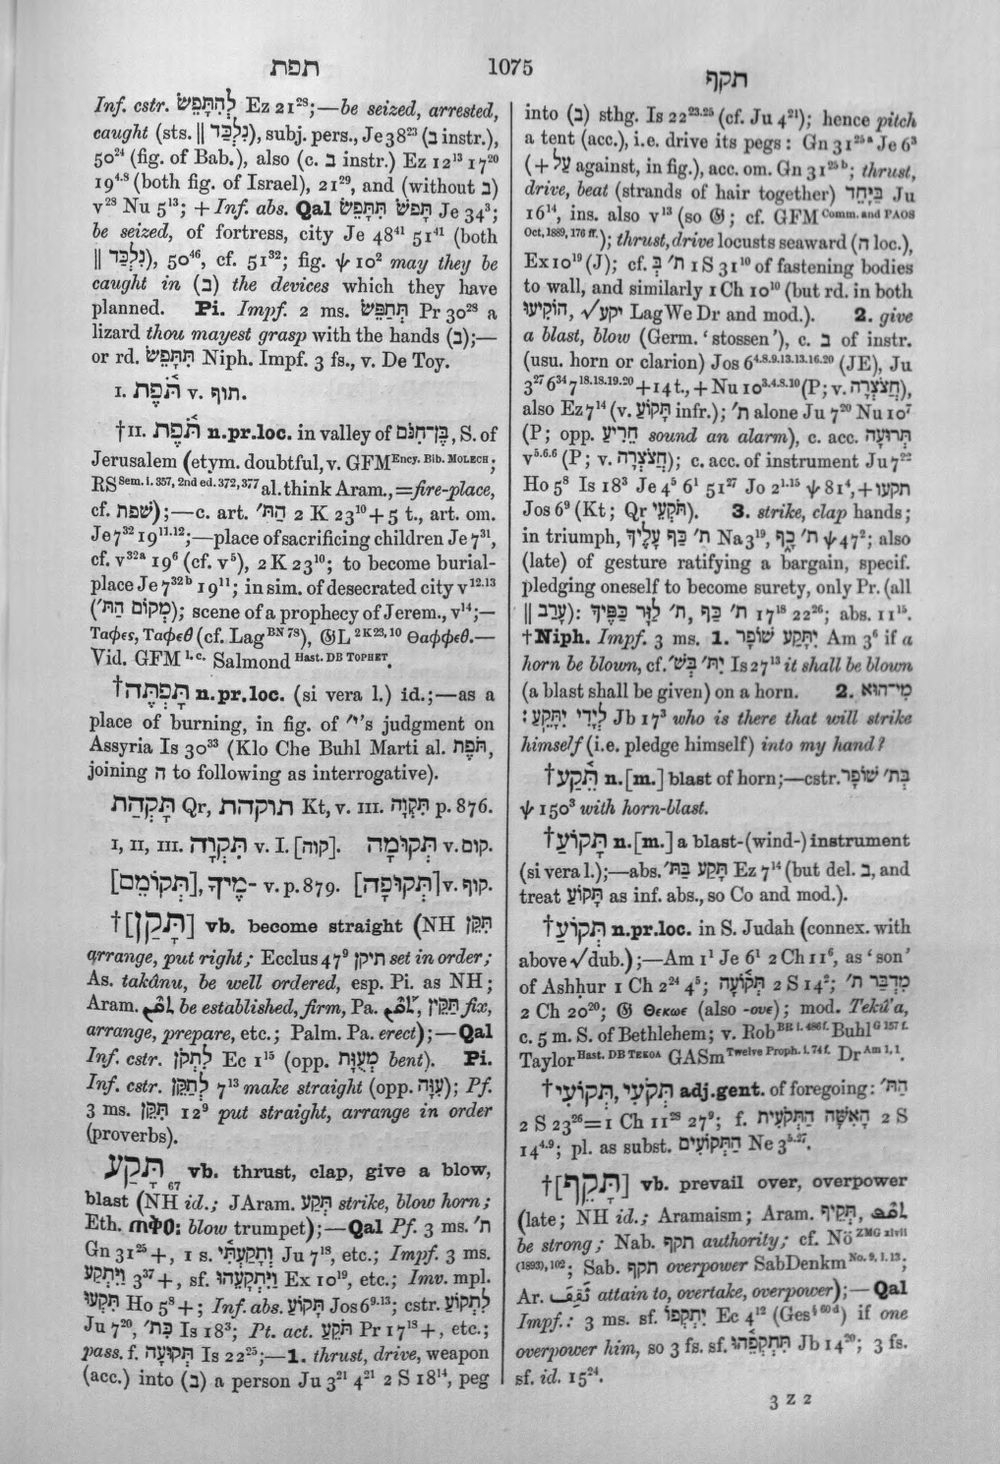 תפת
1075
תקף
Inf. cstr. לְהִתָּפֵשׂ Ez 21²⁸;—be seized, arrested,
caught (sts. ‖ נִלְכַּד), subj. pers., Je 38²³ (בְּ instr.),
50²⁴ (fig. of Bab.), also (c. ב instr.) Ez 12¹³ 17²⁰
19⁴·⁸ (both fig. of Israel), 21²⁹, and (without ב)
v²⁸ Nu 5¹³; + Inf. abs. Qal תָּפֹשׂ תִּתָּפֵשׂ Je 34³;
be seized, of fortress, city Je 48⁴¹ 51⁴¹ (both
‖ נִלְכַּד), 50⁴⁶, cf. 51³²; fig. ψ 10² may they be
caught in (ב) the devices which they have
planned. Pi. Impf. 2 ms. תְּתַפֵּשׂ Pr 30²⁸ a
lizard thou mayest grasp with the hands (ב);—
or rd. תִּתָּפֵשׂ Niph. Impf. 3 fs., v. De Toy.
I. תֹּפֶת v. תוף.
†II. תֹּפֶת n.pr.loc. in valley of בֶּן־הִנֹּם, S. of
Jerusalem (etym. doubtful, v. GFM Ency. Bib. MOLECH;
RS Sem. i. 357, 2nd ed. 372, 377 al. think Aram., = fire-place,
cf. שׁפת);—c. art. הַתּ׳ 2 K 23¹⁰ + 5 t., art. om.
Je 7³² 19¹¹·¹²;—place of sacrificing children Je 7³¹,
cf. v³²ᵃ 19⁶ (cf. v⁵), 2 K 23¹⁰; to become burial-
place Je 7³²ᵇ 19¹¹; in sim. of desecrated city v¹²·¹³
(מְקוֹם הַתּ׳); scene of a prophecy of Jerem., v¹⁴;—
Ταφες, Ταφεθ (cf. Lag BN 78), 𝔊L 2 K 23, 10 Θαφφεθ.—
Vid. GFM l. c. Salmond Hast. DB TOPHET.
†תָּפְתֶּה n.pr.loc. (si vera l.) id.;—as a
place of burning, in fig. of י׳'s judgment on
Assyria Is 30³³ (Klo Che Buhl Marti al. תֹּפֶת,
joining ה to following as interrogative).
תָּקְהַת Qr, תוקהת Kt, v. III. תִּקְוָה p. 876.
I, II, III. תִּקְוָה v. I. [קוה]. תְּקוּמָה v. קום.
[תְּקוֹמֵם], מֶיךָ- v. p. 879. [תְּקוּפָה] v. קוף.
†[תָּקַן] vb. become straight (NH תִּקֵּן
arrange, put right; Ecclus 47⁹ תיקן set in order;
As. takânu, be well ordered, esp. Pi. as NH;
Aram. be established, firm, Pa. תַּקֵּין fix,
arrange, prepare, etc.; Palm. Pa. erect);—Qal
Inf. cstr. לִתְקֹן Ec 1¹⁵ (opp. מְעֻוָּת bent). Pi.
Inf. cstr. לְתַקֵּן 7¹³ make straight (opp. עִוָּה); Pf.
3 ms. תִּקֵּן 12⁹ put straight, arrange in order
(proverbs).
תָּקַע 67 vb. thrust, clap, give a blow,
blast (NH id.; JAram. תְּקַע strike, blow horn;
Eth. ጠቅዐ: blow trumpet);—Qal Pf. 3 ms. ת׳
Gn 31²⁵ +, 1 s. וְתָקַעְתִּי Ju 7¹⁸, etc.; Impf. 3 ms.
וַיִּתְקַע 3²⁷ +, sf. וַיִּתְקָעֵהוּ Ex 10¹⁹, etc.; Imv. mpl.
תִּקְעוּ Ho 5⁸ +; Inf. abs. תָּקוֹעַ Jos 6⁹·¹³; cstr. לִתְקוֹעַ
Ju 7²⁰, כִּתְ׳ Is 18³; Pt. act. תֹּקֵעַ Pr 17¹⁸ +, etc.;
pass. f. תְּקוּעָה Is 22²⁵;—1. thrust, drive, weapon
(acc.) into (ב) a person Ju 3²¹ 4²¹ 2 S 18¹⁴, peg
into (ב) sthg. Is 22²³·²⁵ (cf. Ju 4²¹); hence pitch
a tent (acc.), i.e. drive its pegs : Gn 31²⁵ᵃ Je 6³
(+ עַל against, in fig.), acc. om. Gn 31²⁵ᵇ; thrust,
drive, beat (strands of hair together) בַּיָּתֵד Ju
16¹⁴, ins. also v¹³ (so 𝔊; cf. GFM Comm. and PAOS
Oct. 1889, 176 ff.); thrust, drive locusts seaward (ה loc.),
Ex 10¹⁹ (J); cf. ת׳ בְּ 1 S 31¹⁰ of fastening bodies
to wall, and similarly 1 Ch 10¹⁰ (but rd. in both
הוֹקִיעוּ, √יקע Lag We Dr and mod.). 2. give
a blast, blow (Germ. 'stossen'), c. ב of instr.
(usu. horn or clarion) Jos 6⁴·⁸·⁹·¹³·¹³·¹⁶·²⁰ (JE), Ju
3²⁷ 6³⁴ 7¹⁸·¹⁸·¹⁹·²⁰ + 14 t., + Nu 10³·⁴·⁸·¹⁰ (P; v. חֲצֹצְרָה),
also Ez 7¹⁴ (v. תָּקוֹעַ infr.); ת׳ alone Ju 7²⁰ Nu 10⁷
(P; opp. הֵרִיעַ sound an alarm), c. acc. תְּרוּעָה
v⁵·⁶·⁶ (P; v. חֲצֹצְרָה); c. acc. of instrument Ju 7²²
Ho 5⁸ Is 18³ Je 4⁵ 6¹ 51²⁷ Jo 2¹·¹⁵ ψ 81⁴, + תקעו
Jos 6⁹ (Kt; Qr תֹּקְעֵי). 3. strike, clap hands;
in triumph, ת׳ כַף עָלֶיךָ Na 3¹⁹, ת׳ כָף ψ 47²; also
(late) of gesture ratifying a bargain, specif.
pledging oneself to become surety, only Pr. (all
‖ עָרַב): ת׳ לַזָּר כַּפֶּיךָ, ת׳ כַּף 17¹⁸ 22²⁶; abs. 11¹⁵.
†Niph. Impf. 3 ms. 1. יִתָּקַע שׁוֹפָר Am 3⁶ if a
horn be blown, cf. יִתּ׳ בְּשׁ׳ Is 27¹³ it shall be blown
(a blast shall be given) on a horn. 2. מִי־הוּא
לְיָדִי יִתָּקֵעַ׃ Jb 17³ who is there that will strike
himself (i.e. pledge himself) into my hand?
†תֵּקַע n.[m.] blast of horn;—cstr. בְּתֵ׳ שׁוֹפָר
ψ 150³ with horn-blast.
†תָּקוֹעַ n.[m.] a blast-(wind-) instrument
(si vera l.);—abs. תָּקְעוּ בַתּ׳ Ez 7¹⁴ (but del. ב, and
treat תָּקוֹעַ as inf. abs., so Co and mod.).
†תְּקוֹעַ n.pr.loc. in S. Judah (connex. with
above √ dub.);—Am 1¹ Je 6¹ 2 Ch 11⁶, as 'son'
of Ashḥur 1 Ch 2²⁴ 4⁵; תְּקוֹעָה 2 S 14²; מִדְבַּר ת׳
2 Ch 20²⁰; 𝔊 Θεκωε (also -ουε); mod. Teḳû'a,
c. 5 m. S. of Bethlehem; v. Rob BR i. 486 f. Buhl G 157 f.
Taylor Hast. DB TEKOA GASm Twelve Proph. i. 74 f. Dr Am 1, 1.
†תְּקֹעִי, תְּקוֹעִי adj.gent. of foregoing: הַתּ׳
2 S 23²⁶ = 1 Ch 11²⁸ 27⁹; f. הָאִשָּׁה הַתְּקֹעִית 2 S
14⁴·⁹; pl. as subst. הַתְּקוֹעִים Ne 3⁵·²⁷.
†[תָּקֵף] vb. prevail over, overpower
(late; NH id.; Aramaism; Aram. תְּקֵיף,
be strong; Nab. תקף authority; cf. Nö ZMG xlvii
(1893), 102; Sab. תקף overpower SabDenkm No. 9, l. 13;
Ar. ثَقِفَ attain to, overtake, overpower);—Qal
Impf.: 3 ms. sf. יִתְקְפוֹ Ec 4¹² (Ges § 60 d) if one
overpower him, so 3 fs. sf. תִּתְקְפֵהוּ Jb 14²⁰; 3 fs.
sf. id. 15²⁴.
3 Z 2